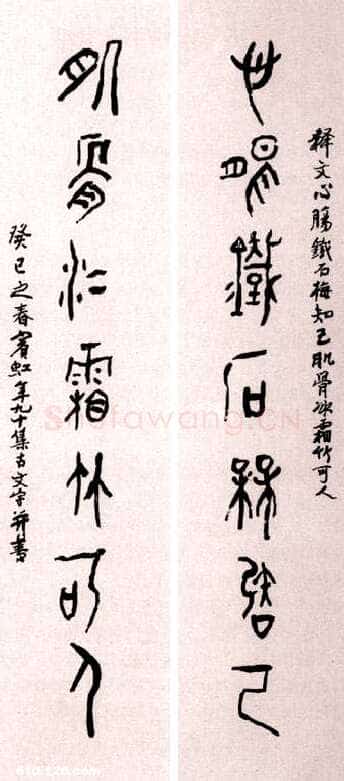 释文心肠铁石梅知己肌骨冰霜竹可人
心肠铁石梅知己
肌骨冰霜竹可人
癸巳之春賓虹年九十集古文字并書